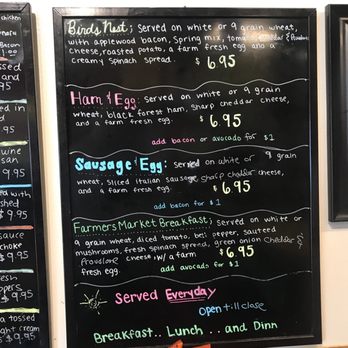 Birds Nest; Served on white or 9 grain wheat,
with applewood bacon, Spring mix, tomato, cheddar & Provolone
cheese, roasted potato, a farm fresh egg and a
creamy spinach spread. $6.95
Ham & Egg: Served on white or 9 grain
wheat, black forest ham, sharp cheddar cheese,
and a farm fresh egg. $6.95
add bacon or avocado for $1
Sausage & Egg: Served on white or 9 grain
wheat, sliced Italian sausage, sharp cheddar cheese,
and a farm fresh egg. $6.95
add bacon for $1
Farmers Market Breakfast; Served on white or
9 grain wheat, diced tomato, bell pepper, sauteed
mushrooms, fresh spinach spread, green onion Cheddar &
Provolone cheese w/ a farm $6.95
fresh egg. add avocado for $1
Served Everyday
open till close
Breakfast.. Lunch .. and Dinn
chicken
Bacon
9.95
ssed
and
9.95
ed in
d
9.95
wine
san
9.95
with
shed
$9.95
sauce
choke
$9.95
esh
ppers
9.95
a tossed
ght cream
$9.95